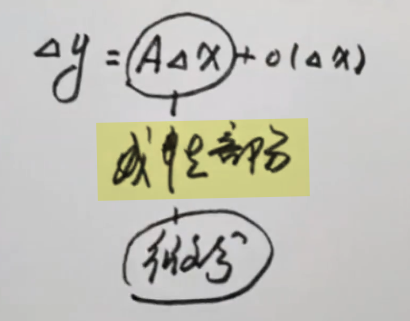 Δy = AΔx + o(Δx)
线性部分
微分